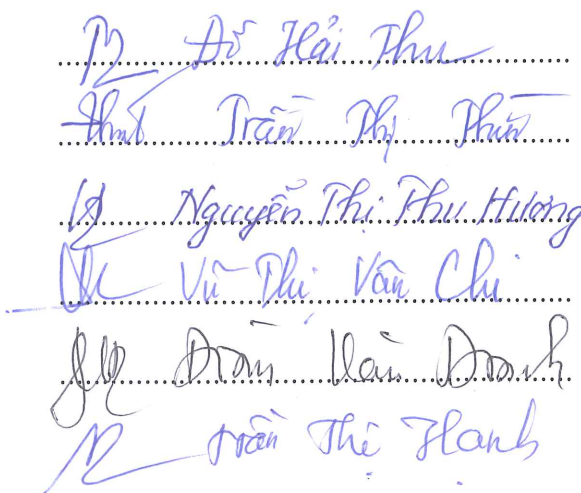 Đỗ Hải Thu
Trần Thị
Nguyễn Thị Thu Hương
Vũ Thị Vân Chi
Đoàn Văn Doanh
Trần Thị Hạnh